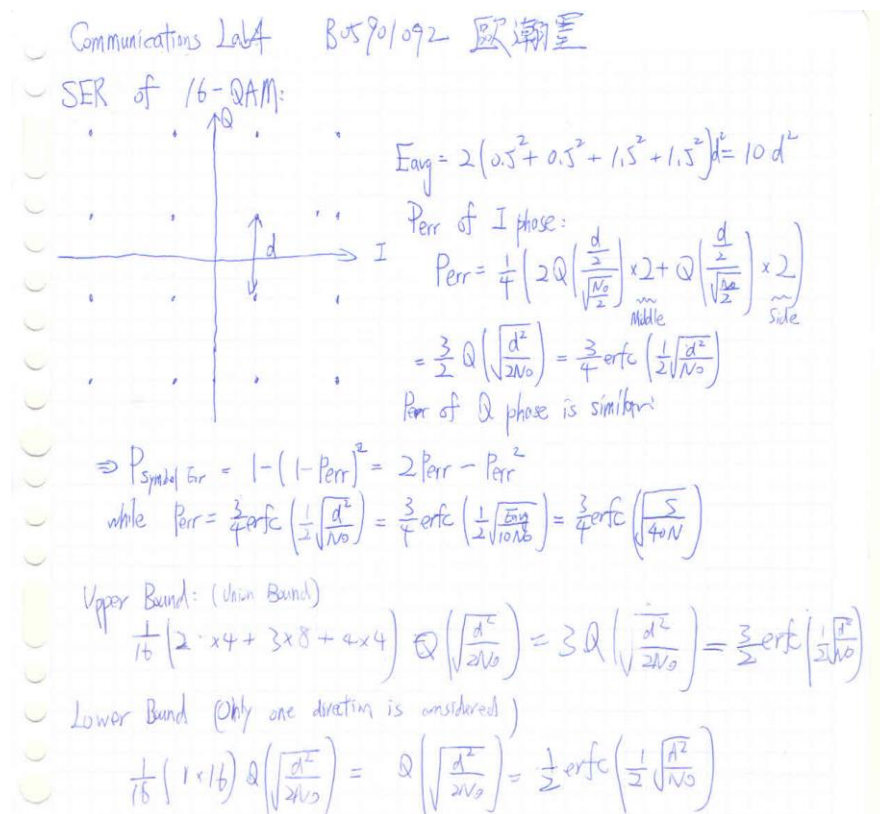 Communications Lab4 B05901092 歐瀚墨
SER of 16-QAM:
Q
I
d
Eavg = 2(0.5² + 0.5² + 1.5² + 1.5²)d² = 10d²
Perr of I phase:
Perr = 1/4 (2Q((d/2)/√(No/2)) × 2 + Q((d/2)/√(No/2)) × 2)
Middle Side
= 3/2 Q(√(d²/2No)) = 3/4 erfc(1/2 √(d²/No))
Perr of Q phase is similar
⇒ PSymbol Err = 1-(1-Perr)² = 2Perr - Perr²
while Perr = 3/4 erfc(1/2 √(d²/No)) = 3/4 erfc(1/2 √(Eavg/10No)) = 3/4 erfc(√(S/40N))
Upper Bound: (Union Bound)
1/16 (2 ×4 + 3×8 + 4×4) Q(√(d²/2No)) = 3Q(√(d²/2No)) = 3/2 erfc(1/2 √(d²/No))
Lower Bund (Only one direction is considered)
1/16 (1×16) Q(√(d²/2No)) = Q(√(d²/2No)) = 1/2 erfc(1/2 √(d²/No))